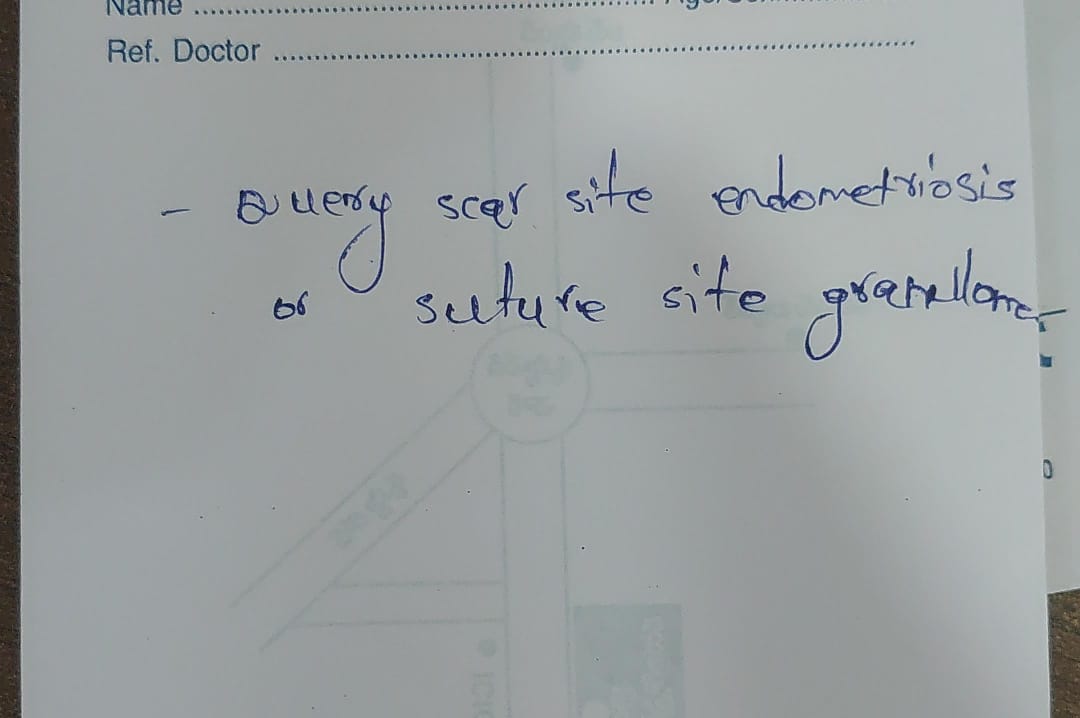 Name ........................................
Ref. Doctor ........................................
- Query scar site endometriosis
or suture site granulloma